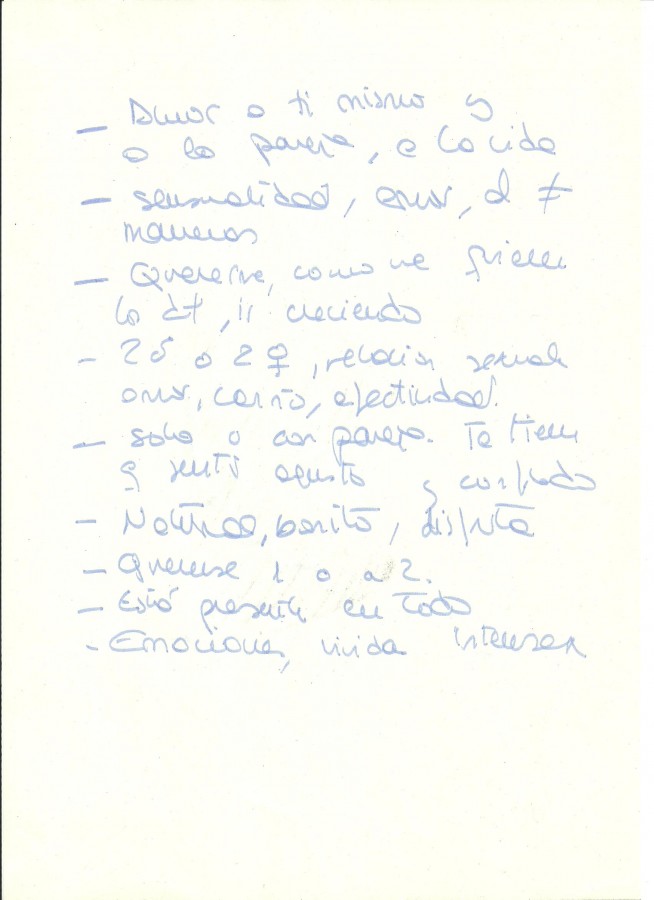 - Amor a ti mismo y
a la pareja, a la vida
- sensualidad, amor, d ≠
maneras
- Quererme, como me quieren
ir creciendo
- 2♂ o 2♀, relación sexual
amor, cariño, afectividad.
- solo o con pareja. Te tiens
q sentir agusto y confiado
- Natural, bonito, disfruta
- Quererse 1 o a 2.
- Está presente en Todo
- Emociones, vivida